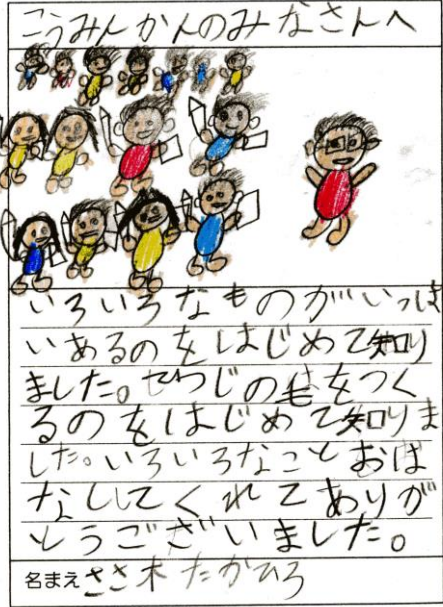 こうみんかんのみなさんへ
いろいろなものがいっぱ
いあるのをはじめて知り
ました。せわじの毛をつく
るのをはじめて知りま
した。いろいろなことおは
なししてくれてありが
とうございました。
名まえ ささ木 たかひろ